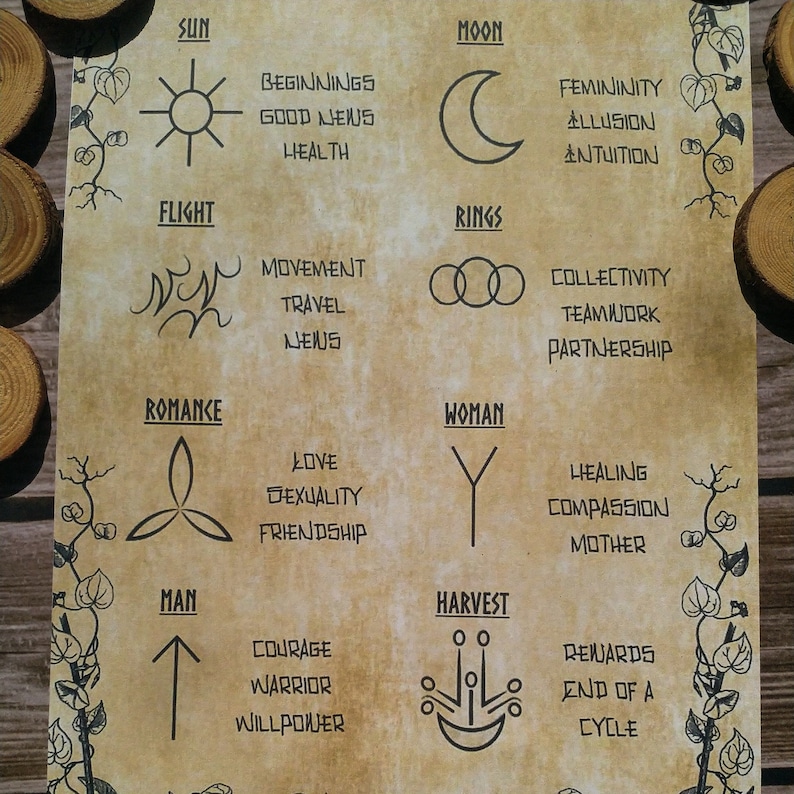 SUN
BEGINNINGS
GOOD NEWS
HEALTH
MOON
FEMININITY
ILLUSION
INTUITION
FLIGHT
MOVEMENT
TRAVEL
NEWS
RINGS
COLLECTIVITY
TEAMWORK
PARTNERSHIP
ROMANCE
LOVE
SEXUALITY
FRIENDSHIP
WOMAN
HEALING
COMPASSION
MOTHER
MAN
COURAGE
WARRIOR
WILLPOWER
HARVEST
REWARDS
END OF A
CYCLE